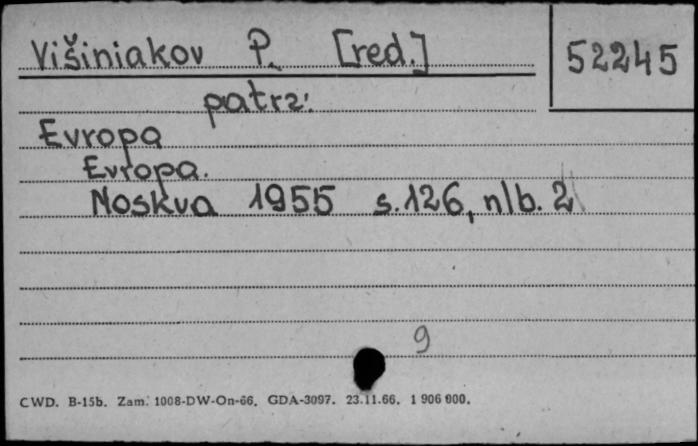 Višiniakov P. [red.]
52245
patrz:
Evropa
Evropa.
Moskva 1955 s.126, nlb. 2
9
CWD. B-15b. Zam. 1008-DW-On-66. GDA-3097. 23.11.66. 1 906 000.